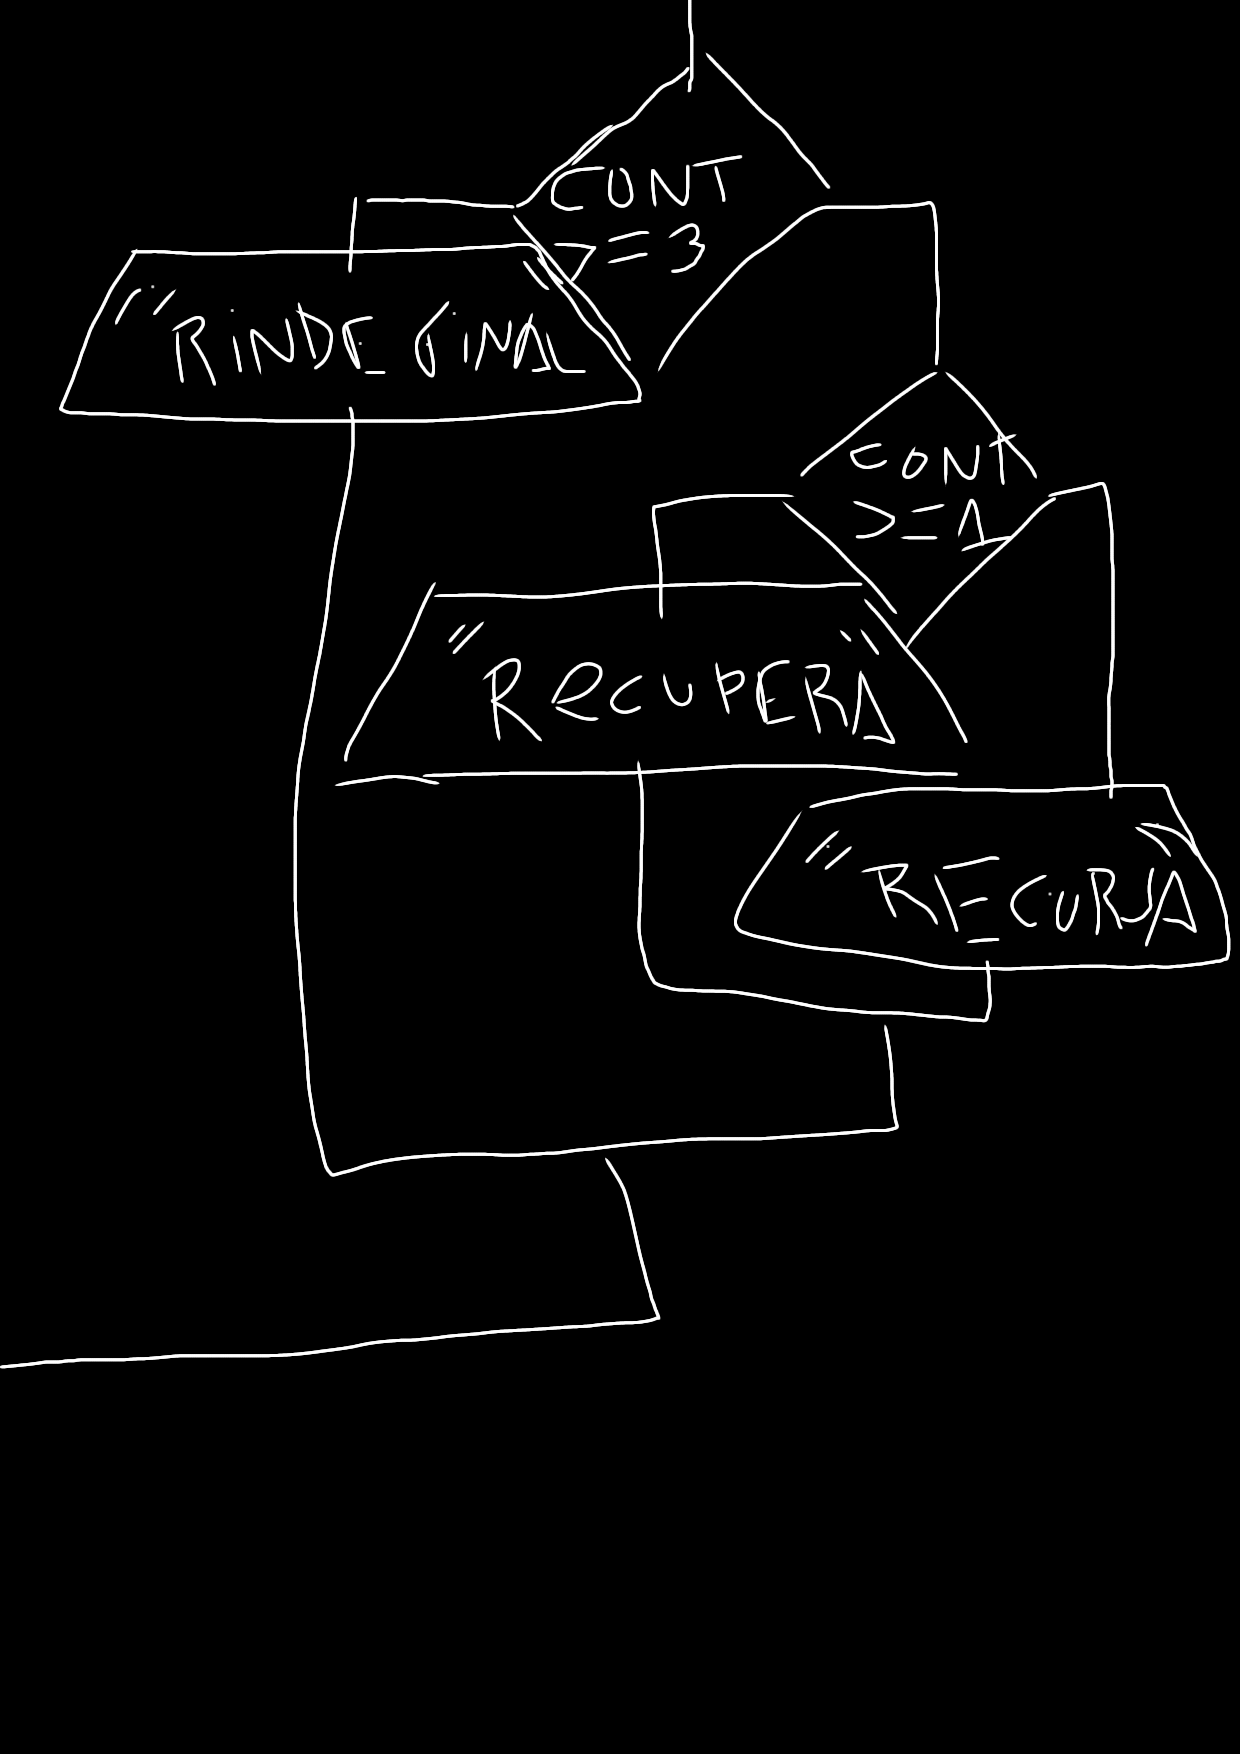 CONT
>=3
"RINDE FINAL"
CONT
>=1
"RECUPERA"
"RECURSA"